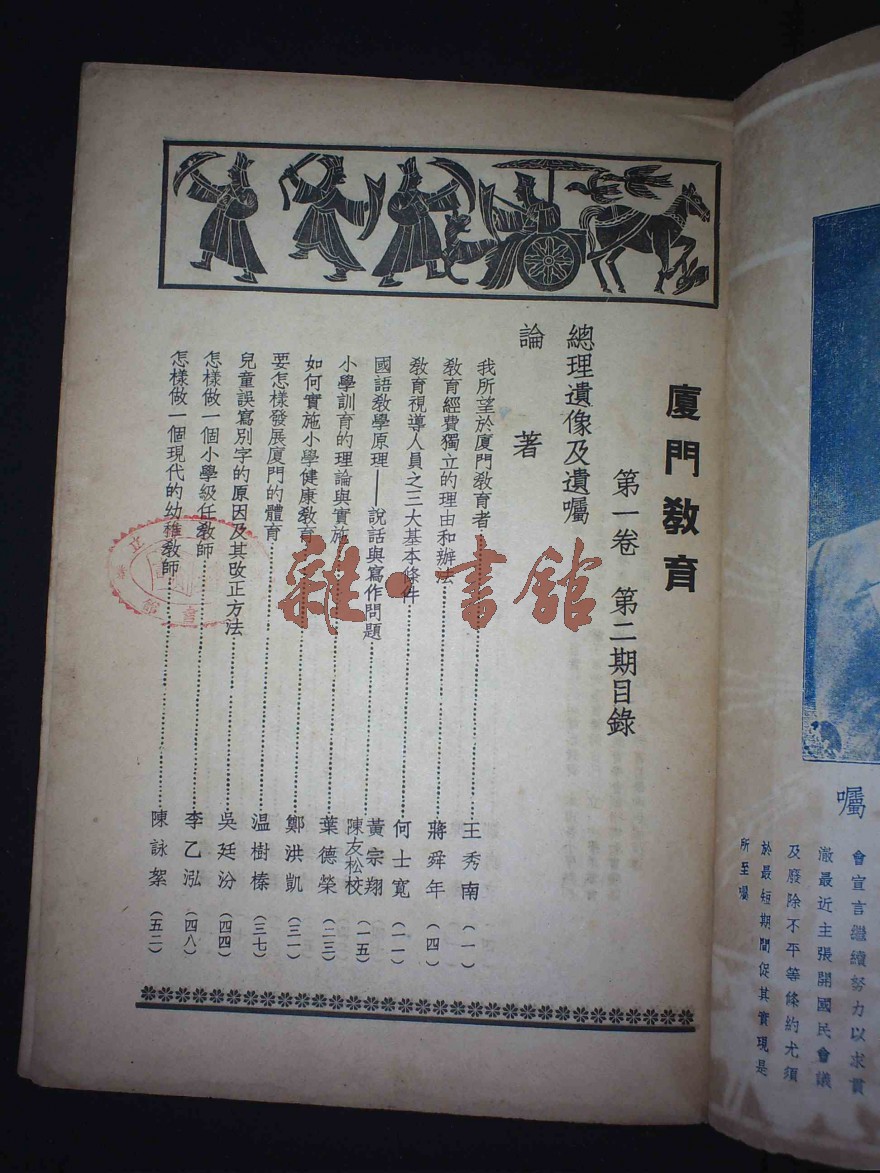 廈門教育
第一卷 第二期目錄
總理遺像及遺囑
論著
我所望於廈門教育者……王秀南(一)
教育經費獨立的理由和辦法……蔣舜年(四)
教育視導人員之三大基本條件……何士寬(一一)
國語教學原理——說話與寫作問題……黃宗翔 陳友松校(一五)
小學訓育的理論與實施……葉德榮(二三)
如何實施小學健康教育……鄭洪凱(三一)
要怎樣發展廈門的體育……温樹榛(三七)
兒童誤寫別字的原因及其改正方法……吳廷汾(四四)
怎樣做一個小學級任教師……李乙泓(四八)
怎樣做一個現代的幼稚教師……陳詠絮(五二)
雜·書館
囑
會宣言繼續努力以求貫
澈最近主張開國民會議
及廢除不平等條約尤須
於最短期間促其實現是
所至囑